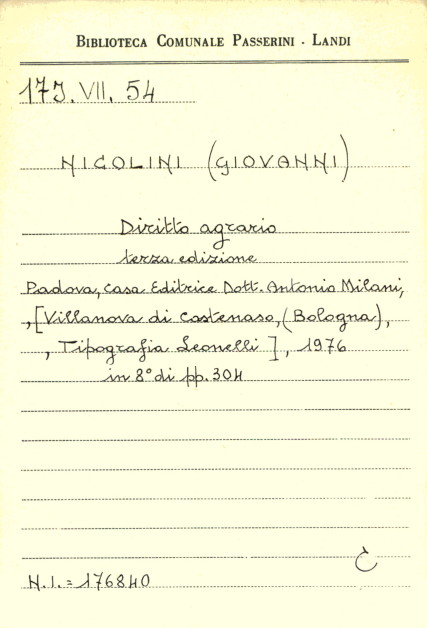 BIBLIOTECA COMUNALE PASSERINI - LANDI
17J. VII. 54
NICOLINI (GIOVANNI)
Diritto agrario
terza edizione
Padova, Casa Editrice Dott. Antonio Milani,
,[Villanova di Castenaso, (Bologna),
, Tipografia Leonelli ], 1976
in 8° di pp. 304
C
N.I. = 176840